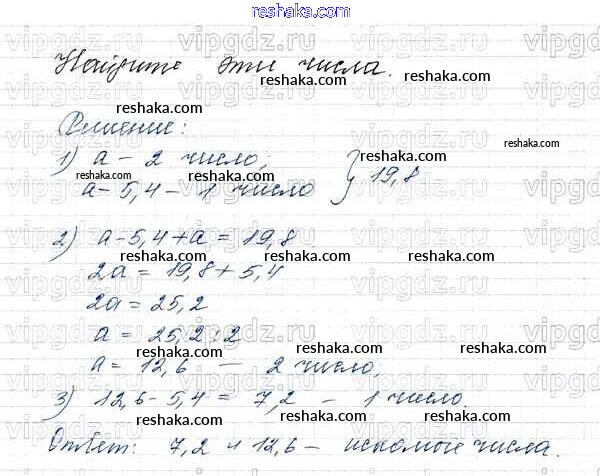 reshaka.com
Найдите эти числа.
Решение:
1) а - 2 число;
а - 5,4 - 1 число } 19,8
2) а - 5,4 + а = 19,8
2а = 19,8 + 5,4
2а = 25,2
а = 25,2 : 2
а = 12,6 — 2 число;
3) 12,6 - 5,4 = 7,2 - 1 число.
Ответ: 7,2 и 12,6 - искомые числа.